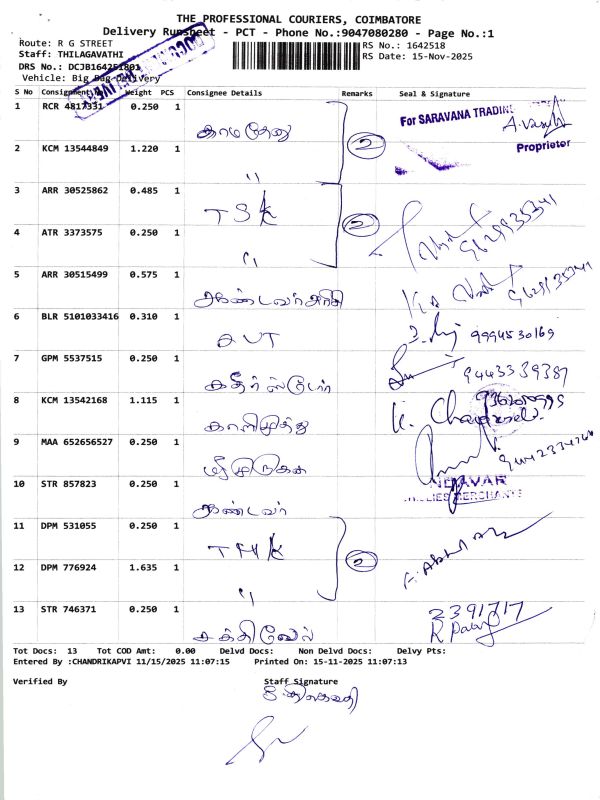 THE PROFESSIONAL COURIERS, COIMBATORE
Delivery Runsheet - PCT - Phone No.:9047080280 - Page No.:1
Route: R G STREET RS No.: 1642518
Staff: THILAGAVATHI RS Date: 15-Nov-2025
DRS No.: DCJB164251801
Vehicle: Big Bag Delivery
S No Consignment Weight PCS Consignee Details Remarks Seal & Signature
1 RCR 4817331 0.250 1 காமதேனு 2 For SARAVANA TRADING
Proprietor
2 KCM 13544849 1.220 1 ,,
3 ARR 30525862 0.485 1 TSK 2 9629935341
4 ATR 3373575 0.250 1 ,,
5 ARR 30515499 0.575 1
6 BLR 5101033416 0.310 1 SVT 9994530169
7 GPM 5537515 0.250 1 கதிர் ஸ்டோர் 9443339387
8 KCM 13542168 1.115 1 காளிமுத்து
9 MAA 652656527 0.250 1 ஸ்ரீமுருகன்
10 STR 857823 0.250 1 கண்டவர்
11 DPM 531055 0.250 1 THK 2
12 DPM 776924 1.635 1 ,,
13 STR 746371 0.250 1 சக்திவேல் 2391717
Tot Docs: 13 Tot COD Amt: 0.00 Delvd Docs: Non Delvd Docs: Delvy Pts:
Entered By :CHANDRIKAPVI 11/15/2025 11:07:15 Printed On: 15-11-2025 11:07:13
Verified By Staff Signature